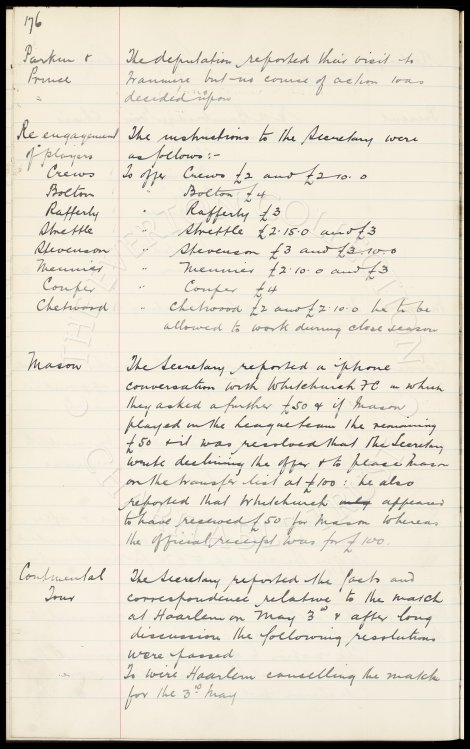 176
Parkin & The deputation reported their visit to
Prince Tranmere but no course of action was
" decided upon
Re engagement The instructions to the Secretary were
of players as follows :-
Crews To offer Crews £2 and £2-10-0
Bolton " Bolton £4
Rafferty " Rafferty £3
Strettle " Strettle £2-15-0 and £3
Stevenson " Stevenson £3 and £3-10-0
Meunier " Meunier £2-10-0 and £3
Couper " Couper £4
Chetwood " Chetwood £2 and £2-10-0 he to be
allowed to work during close season
Mason The Secretary reported a 'phone
conversation with Whitchurch FC in which
they asked a further £50 & if Mason
played in the League team the remaining
£50 & it was resolved that the Secretary
wrote declining the offer & to place Mason
on the transfer list at £100 : he also
reported that Whitchurch only appeared
to have received £50 for Mason whereas
the official receipt was for £100.
Continental The Secretary reported the facts and
Tour correspondence relative to the match
at Haarlem on May 3rd & after long
discussion the following resolutions
were passed
To wire Haarlem cancelling the match
for the 3rd May